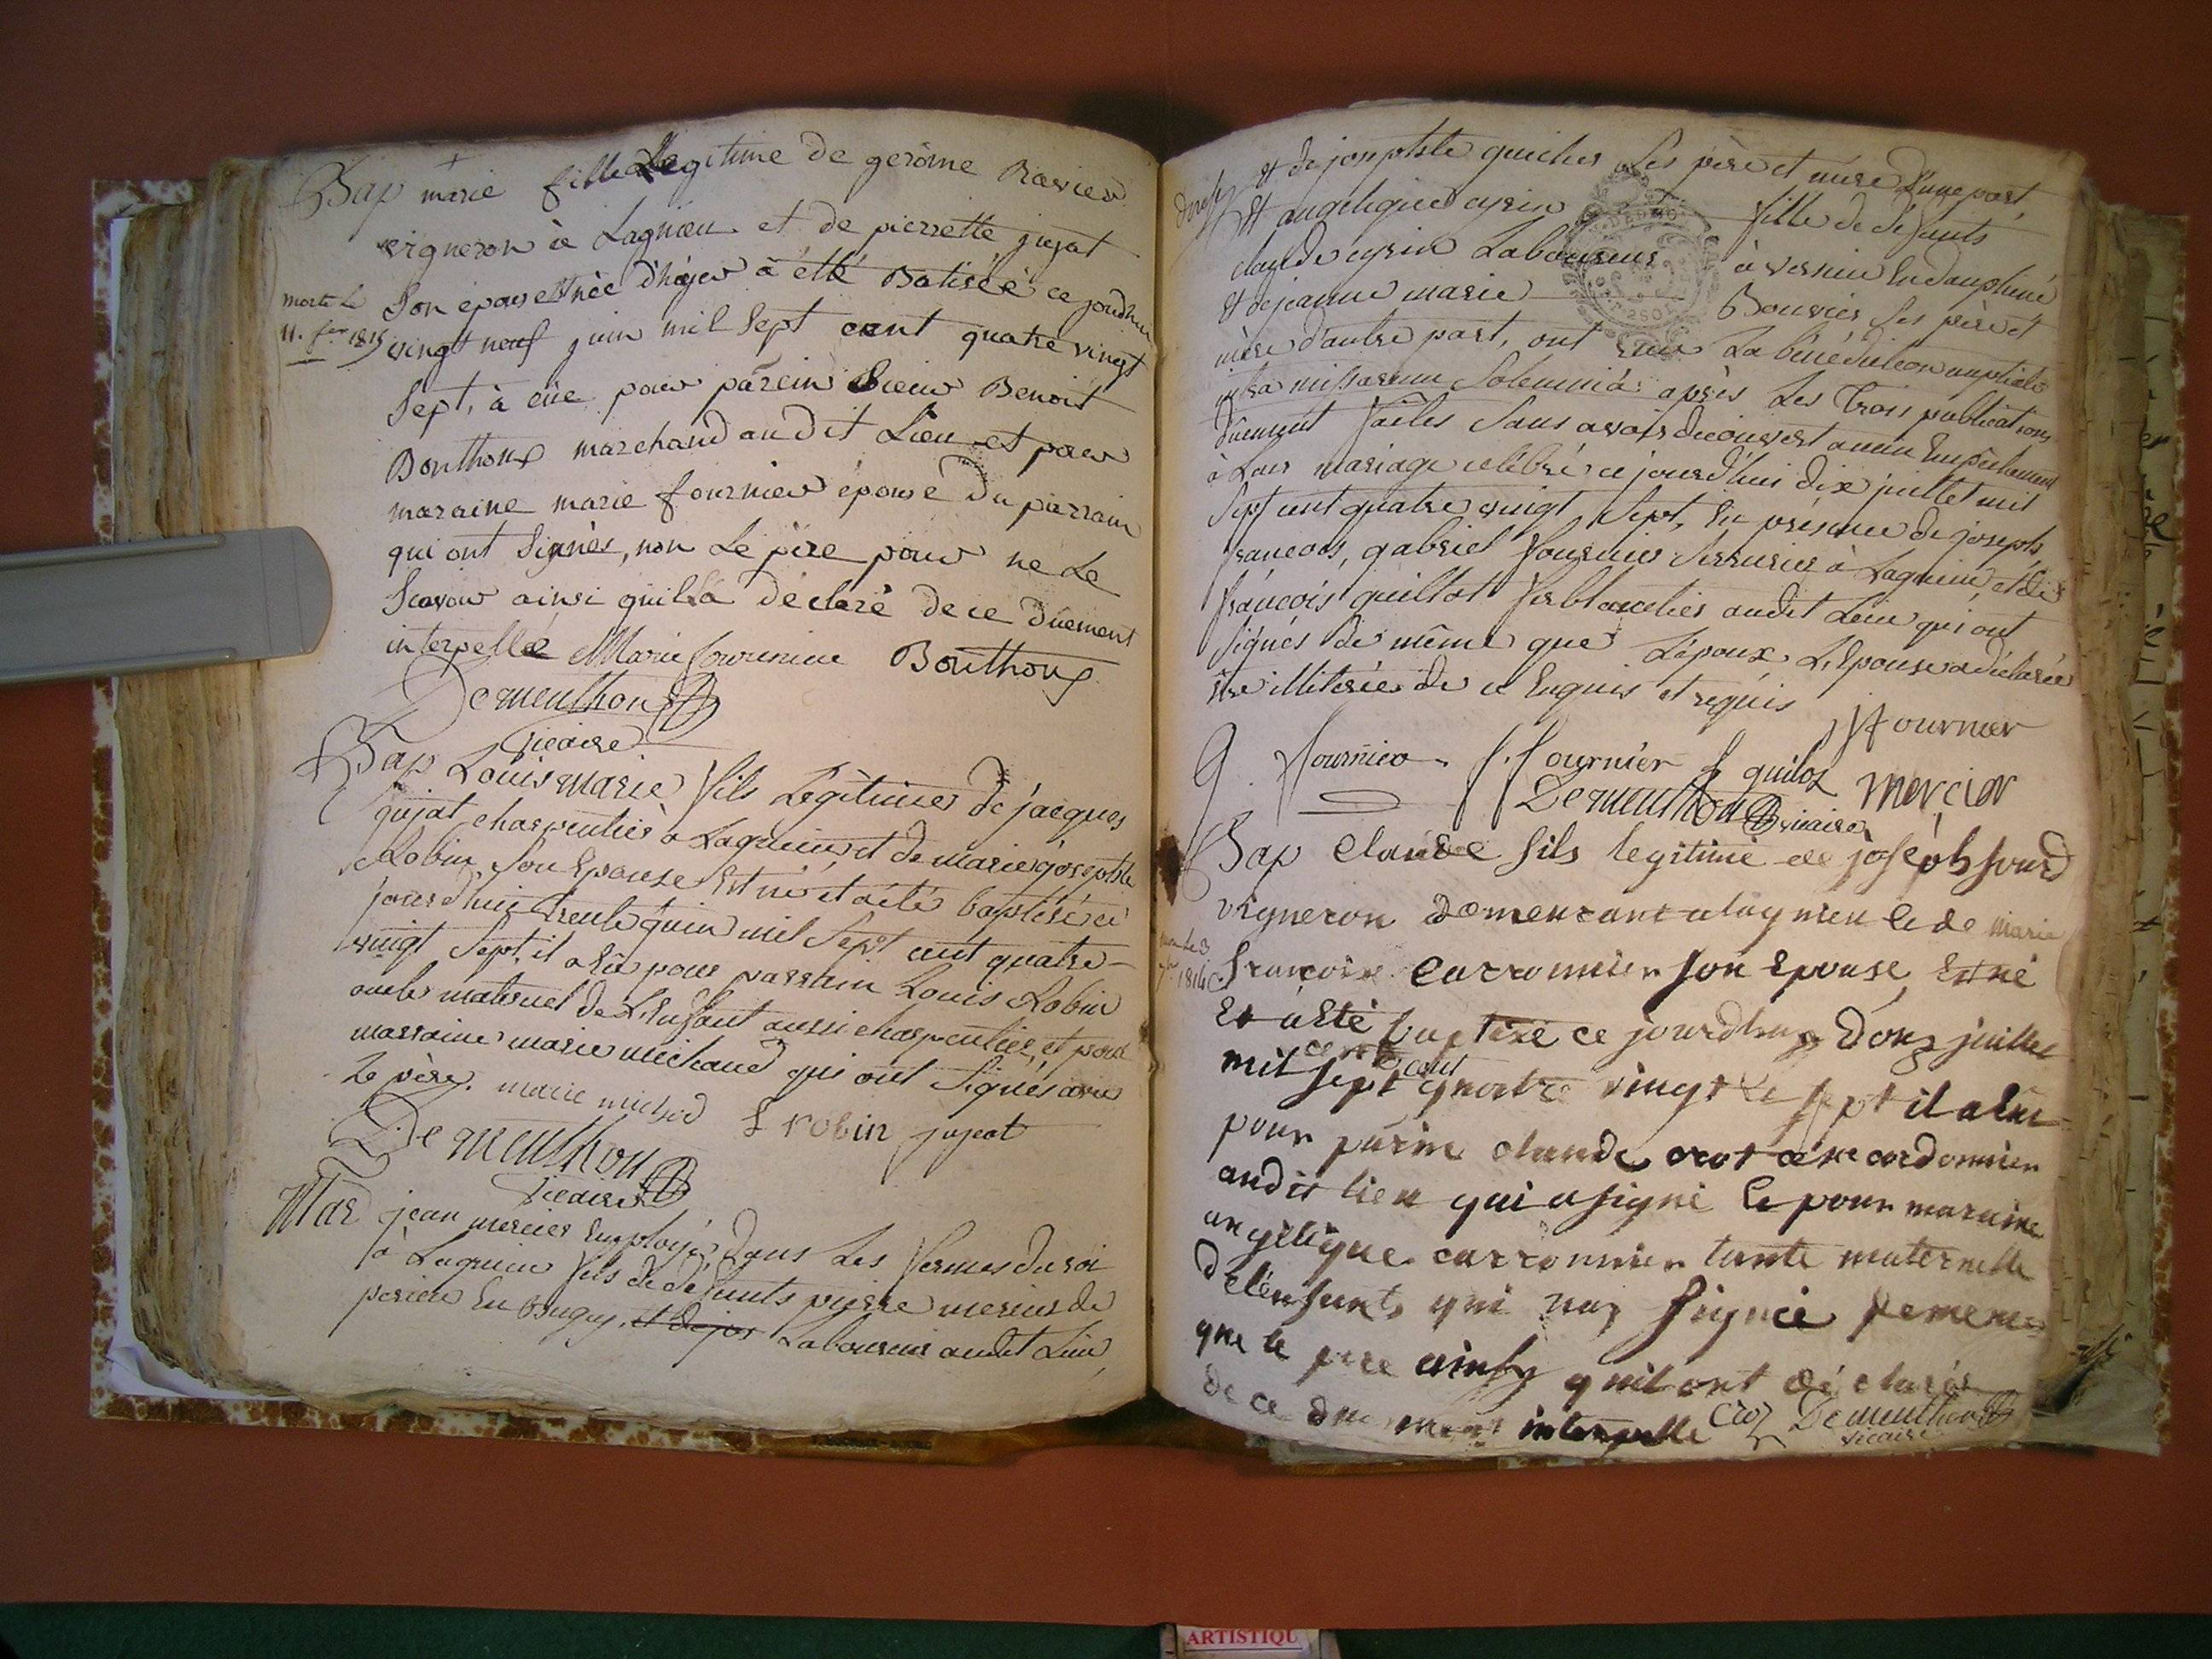 Bap marie fille Legitime de gerôme Ravier
vigneron à Lagnieu et de pierrette jujat
morte le
11. fer 1815
Son épouse née d'hojer à été Batisée ce jourdhui
vingt neuf juin mil Sept cent quatre vingt
Sept, à eüe pour parein Sieur Benoit
Bonthoux marchand audit Lieu et pour
maraine marie fournier épouse Du parrain
qui ont Signès, non Le père pour ne Le
Scavoir ainsi quil a déclaré de ce Düement
interpellé Marie fournier Bonthoux
Dementhon
vicaire
Bap Louis marie fils Légitime de jacques
jujat charpentier à Lagnieu, et de marie josephte
Robin Son Epouse Est né et a été baptisé ce
jourd'hui trente juin mil Sept cent quatre-
vingt Sept, il a Eû pour parrain Louis Robin
oncle maternel de L'Enfant aussi charpentier, et pour
marraine marie michaud qui ont Signés avec
Le père. marie michod L robin jujat
Dementhon
vicaire
Mar jean mercier Employé dans Les fermes du roi
à Lagnieu fils de défunts pierre mercier de
perieu En Bugey, et de jos Laboureur audit Lieu,
et de josephte guicher Ses père et mère d'une part,
Et angelique cyrin fille de défunts
claude cyrin Laboureur à versin En dauphiné
Et de jeanne marie Bouvier Ses père et
mère d'autre part, ont reçu La bénédiction nuptiale
intra missarum Solemnia après Les trois publications
düement faites Sans avoir découvert aucun Empêchement
à Leur mariage celébré ce jourd'hui dix juillet mil
Sept cent quatre vingt Sept, En présence de joseph,
francois, gabriel fournier Serrurier à Lagnieu, et de
françois guillot ferblantier audit Lieu qui ont
Signés de même que L'époux, L'Epouse a déclarée
être illiterée de ce Enquis et requis
J fournier
G. fournier f. fournier f guiloz mercier
Dementhon vicaire
Bap Claude fils legitime de joseph jourd
vigneron demeurant a lagnieu Et de marie
1814
françoise carronnier son Epouse, Est né
Et a Eté baptisé ce jourdhuy Douz juillet
mil sept cent quatre vingt sept il a Eu
pour parin claude crot cordonnier
audit lieu qui a signé Et pour maraine
angelique carronnier tante maternelle
De lenfant, qui nas signé de meme
que le pere ainsy quil ont dé clarés
de ce duement interpelle Croz Dementhon
vicaire
ARTISTIQU